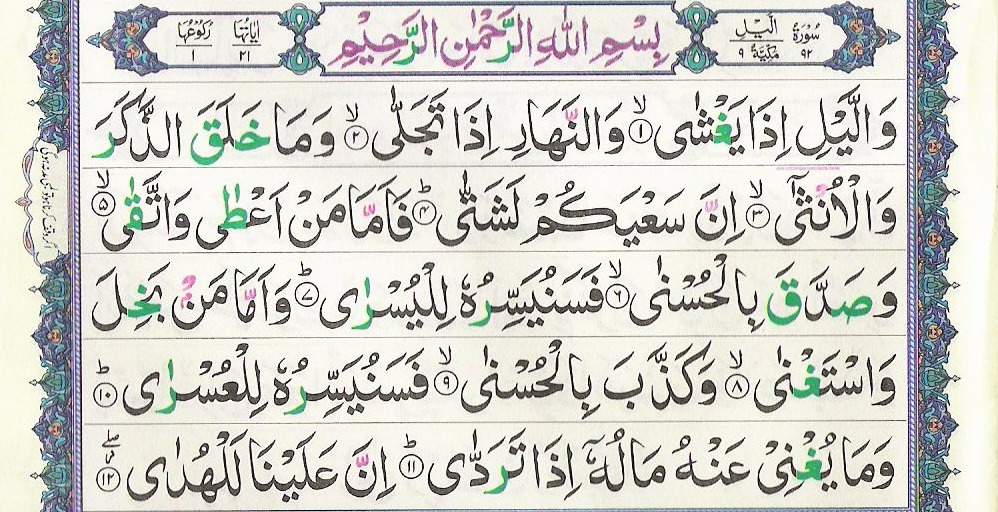 سُوْرَةُ ٩٢ الَّيْلِ مَكِّيَّةٌ ٩
بِسْمِ اللهِ الرَّحْمٰنِ الرَّحِيْمِ
اٰيَاتُهَا ٢١ رُكُوْعُهَا ١
وَالَّيْلِ اِذَا يَغْشٰى ۙ﴿١﴾ وَالنَّهَارِ اِذَا تَجَلّٰى ۙ﴿٢﴾ وَمَا خَلَقَ الذَّكَرَ
وَالْاُنْثٰٓى ۙ﴿٣﴾ اِنَّ سَعْيَكُمْ لَشَتّٰى ؕ﴿٤﴾ فَاَمَّا مَنْ اَعْطٰى وَاتَّقٰى ۙ﴿٥﴾
وَصَدَّقَ بِالْحُسْنٰى ۙ﴿٦﴾ فَسَنُيَسِّرُهٗ لِلْيُسْرٰى ؕ﴿٧﴾ وَاَمَّا مَنْۢ بَخِلَ
وَاسْتَغْنٰى ۙ﴿٨﴾ وَكَذَّبَ بِالْحُسْنٰى ۙ﴿٩﴾ فَسَنُيَسِّرُهٗ لِلْعُسْرٰى ؕ﴿١٠﴾
وَمَا يُغْنِىْ عَنْهُ مَالُهٗۤ اِذَا تَرَدّٰى ؕ﴿١١﴾ اِنَّ عَلَيْنَا لَلْهُدٰى ۖ﴿١٢﴾